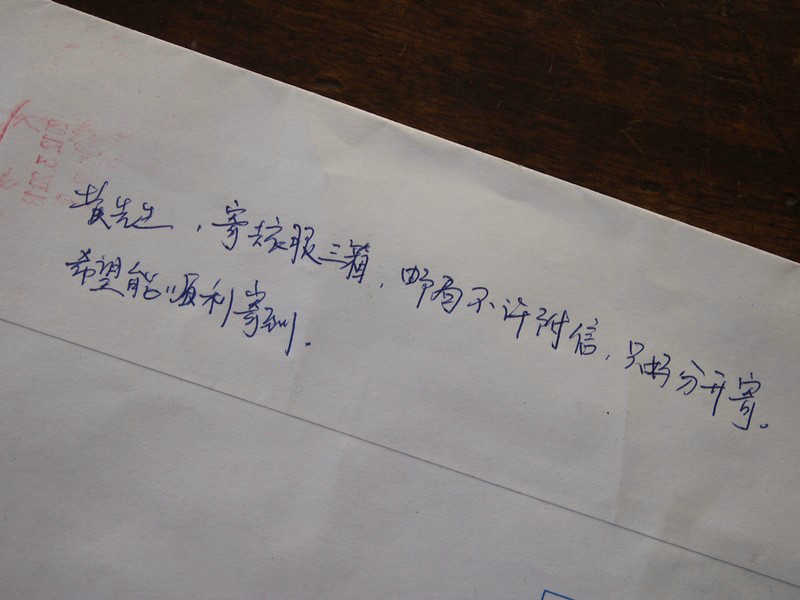 黄先生，寄去衣服三箱，邮局不许附信，只好分开寄。
希望能顺利寄到.